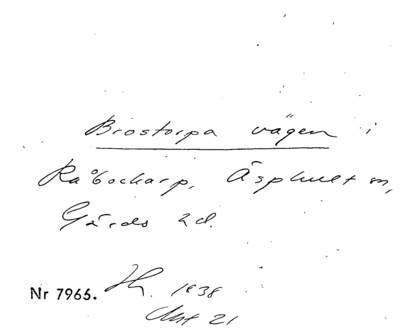 Brostorpa vägen i
Råbockarp, Äsphult sn,
Gärds hd.
Nr 7966. 1838
21